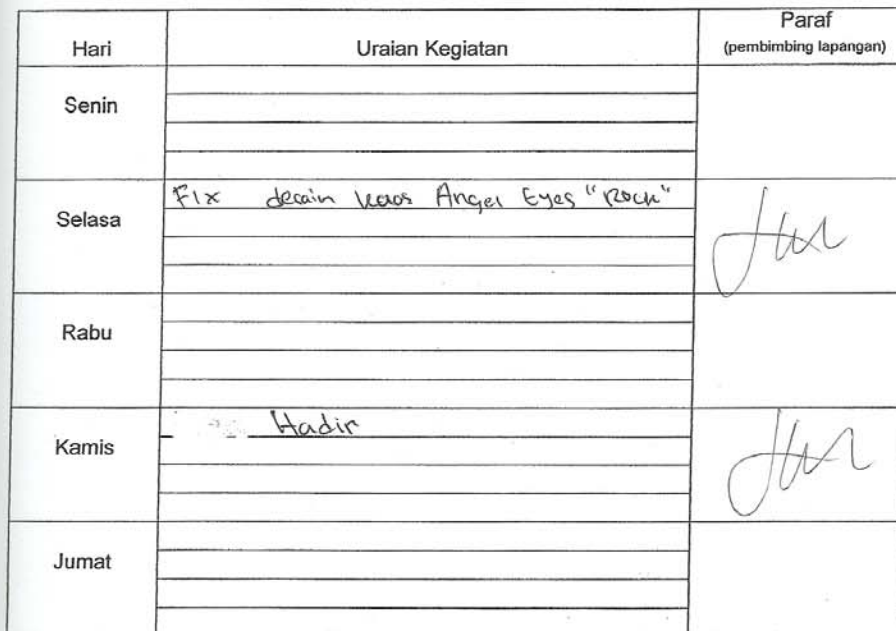 Hari Uraian Kegiatan Paraf
(pembimbing lapangan)
Senin
Selasa Fix decain kaos Angel Eyes "Rock"
Rabu
Kamis Hadir
Jumat